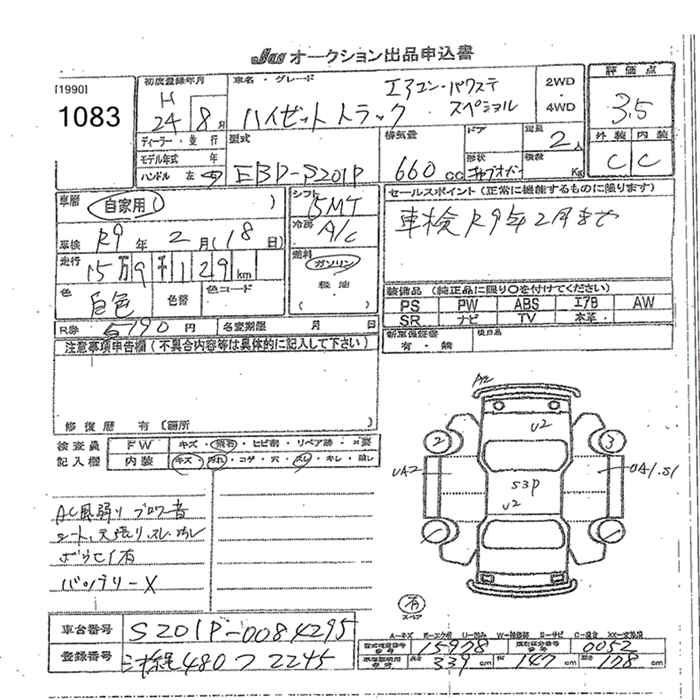 JAA オークション出品申込書
[1990]
1083
初度登録年月
H
24年 8月
車名・グレード
エアコン・パワステ
ハイゼットトラック スペシャル
2WD
・
4WD
評価点
3.5
外装 内装
C C
ディーラー・並行
モデル年式 年
ハンドル 左・右
型式
EBD-S201P
排気量
660 cc
ドア
形状
キャブオーバー
定員
2人
積載
Kg
車歴
自家用 ( )
車検 R9年 2月(18日)
走行
15万9千129km
色
白色
色替
色コード
シフト
5MT
冷房
A/C
燃料
ガソリン
軽油
( )
セールスポイント(正常に機能するものに限ります)
車検R9年2月まで
装備品(純正品に限り○を付けてください)
PS PW ABS エアB AW
SR ナビ TV 本革・
新車保証書
有・無
R券 6790円 名変期限 月 日
注意事項申告欄(不具合内容等は具体的に記入して下さい)
修復歴 有(箇所 )
検査員
記入欄
FW キズ・飛石・ヒビ割・リペア跡・×要
内装 キズ・汚れ・コゲ・穴・スレ・キレ・無し
AC風弱り ブロワ音
シート、天張り、スレ・汚レ
バッテリーX
A2
U2
2
3
UA2
UA1.S1
S3P
U2
有
スペア
車台番号 S201P-0084295
登録番号 三檢 480 フ 2245
15978
0052
長さ 339cm 幅 147cm 高さ 178cm